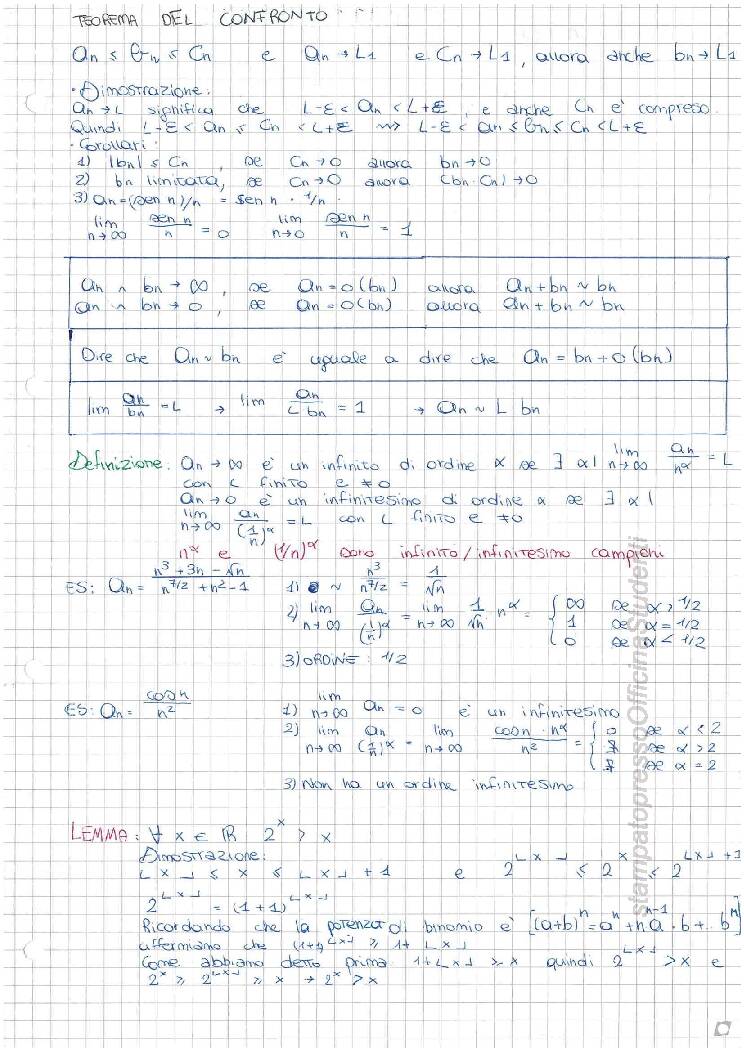 TEOREMA DEL CONFRONTO
an ≤ bn ≤ Cn e an → L1 e Cn → L1, allora anche bn → L1
· Dimostrazione:
an → L significa che L-ε < an < L+ε, e anche Cn è compreso.
Quindi L-ε < an ≤ Cn < L+ε ⇝ L-ε < an ≤ bn ≤ Cn < L+ε
· Corollari:
1) |bn| ≤ Cn, se Cn → 0 allora bn → 0
2) bn limitata, se Cn → 0 allora (bn · Cn) → 0
3) an = (sen n)/n = sen n · 1/n ·
lim n→∞ sen n / n = 0 lim n→0 sen n / n = 1
an ∧ bn → ∞, se an = o(bn) allora an + bn ~ bn
an ∧ bn → 0, se an = o(bn) allora an + bn ~ bn
Dire che an ~ bn è uguale a dire che an = bn + o(bn)
lim an/bn = L → lim an/L bn = 1 → an ~ L bn
Definizione: an → ∞ è un infinito di ordine α se ∃ α | lim n→∞ an/n^α = L
con L finito e ≠0
an → 0 è un infinitesimo di ordine α se ∃ α |
lim n→∞ an/(1/n)^α = L con L finito e ≠0
n^α e (1/n)^α sono infinito/infinitesimo campioni
ES: an = (n³ + 3n - √n)/(n^7/2 + n² - 1) 1) ~ n³/n^7/2 = 1/√n
2) lim n→∞ an/(1/n)^α = lim n→∞ 1/√n n^α = { ∞ se α > 1/2
1 se α = 1/2
0 se α < 1/2
3) ORDINE: 1/2
ES: an = cos n / n² 1) lim n→∞ an = 0 è un infinitesimo
2) lim n→∞ an/(1/n)^α = lim n→∞ cos n · n^α / n² = { 0 se α < 2
∄ se α > 2
∄ se α = 2
3) Non ha un ordine infinitesimo
LEMMA: ∀ x ∈ ℝ 2^x > x
Dimostrazione:
⌊x⌋ ≤ x ≤ ⌊x⌋ + 1 e 2^⌊x⌋ ≤ 2^x ≤ 2^⌊x⌋+1
2^⌊x⌋ = (1+1)^⌊x⌋
Ricordando che la potenza di binomio è [(a+b)^n = a^n + n a^n-1 · b + .. b^n]
affermiamo che (1+1)^⌊x⌋ ≥ 1 + ⌊x⌋
Come abbiamo detto prima 1+⌊x⌋ > x quindi 2^⌊x⌋ > x e
2^x ≥ 2^⌊x⌋ ≥ x → 2^x > x
stampatopressoOfficinaStudenti